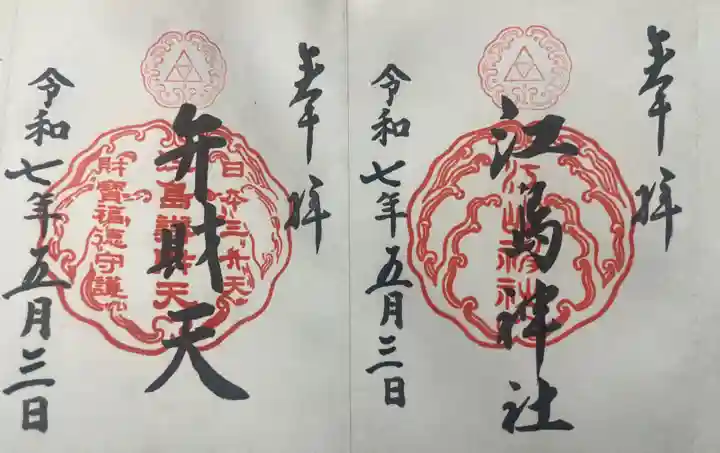 奉拝
江島神社
令和七年五月三日
奉拝
弁財天
日本三弁天
江島辯財天
財寶福徳守護
令和七年五月三日